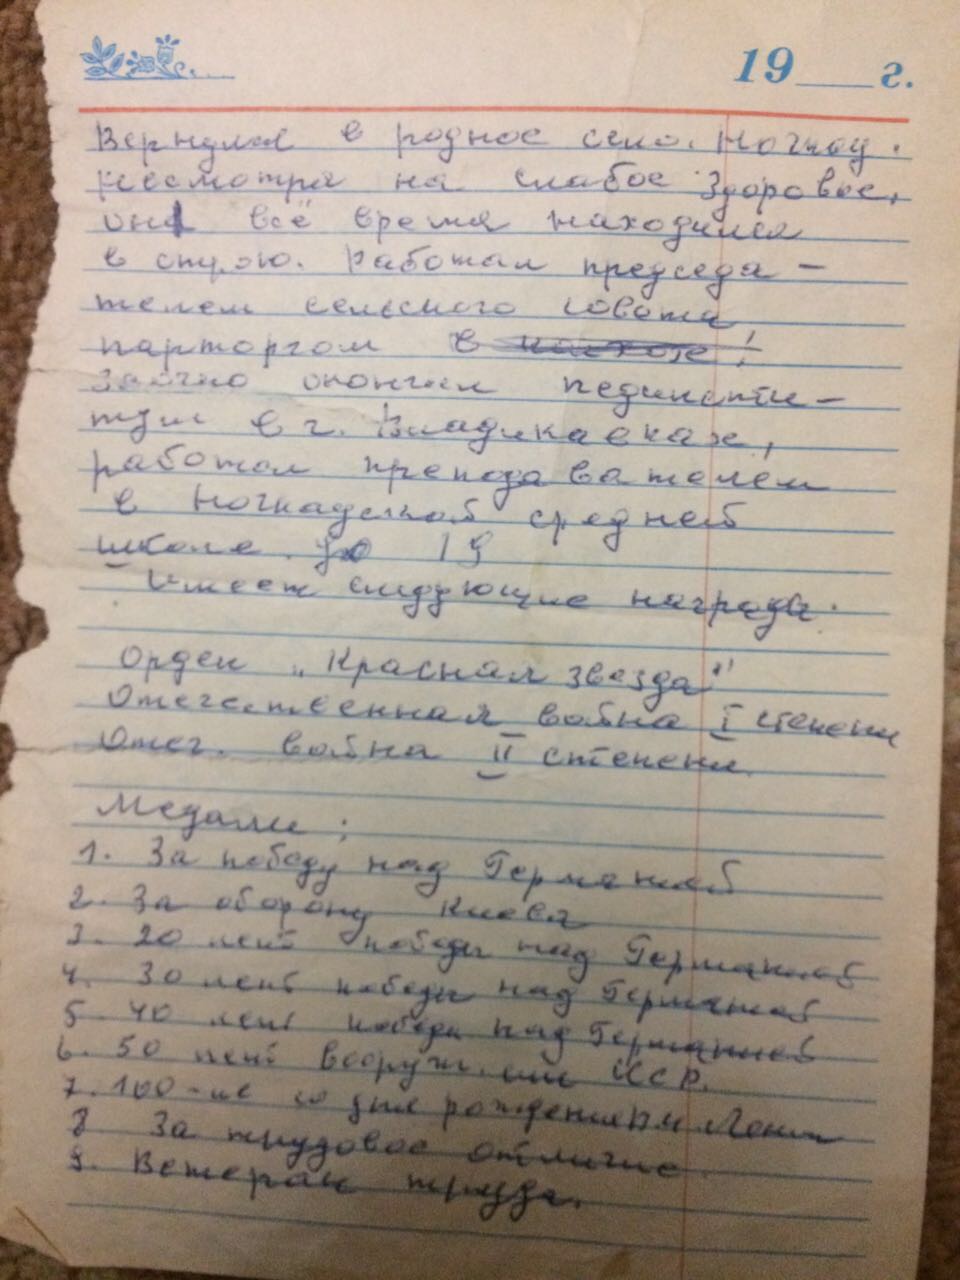 19___г.
Вернулся в родное село. Ногкау.
Несмотря на слабое здоровье,
он всё время находился
в строю. Работал председа-
телем сельского совета,
парторгом в колхозе;
Заочно окончил пединсти-
тут в г. Владикавказе,
работал преподавателем
в Ногкадской средней
школе до 19
Имеет следующие награды.
Орден „Красная звезда"
Отечественная война I степени
Отеч. война II степени.
Медали:
1. За победу над Германией
2. За оборону Киева
3. 20 лет победы над Германией
4. 30 лет победы над Германией
5 40 лет победы над Германией
6. 50 лет вооруж. сил СССР.
7. 100-ие со дня рождения В.И. Ленин
8 За трудовое отличие.
9. Ветеран труда.